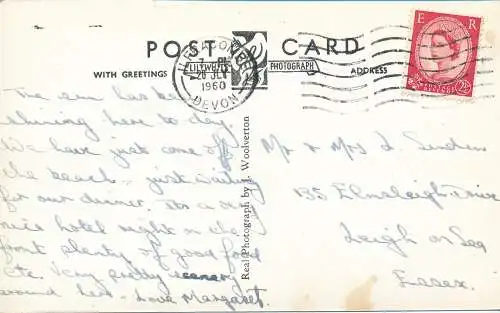 POST CARD
WITH GREETINGS
LILYWHITE
PHOTOGRAPH
ADDRESS
ILFRACOMBE
1960
DEVON
E R
2½
The sun has been
shining here to day.
We have just come off
the beach — just waiting
for our dinner. It's a very
nice hotel right on the
front plenty of good food
etc. Very pretty scenery
around here. Love Margaret.
Real Photograph by Woolverton
Mr & Mrs L. Sanders
135 Elmsleigh Drive
Leigh on Sea
Essex.